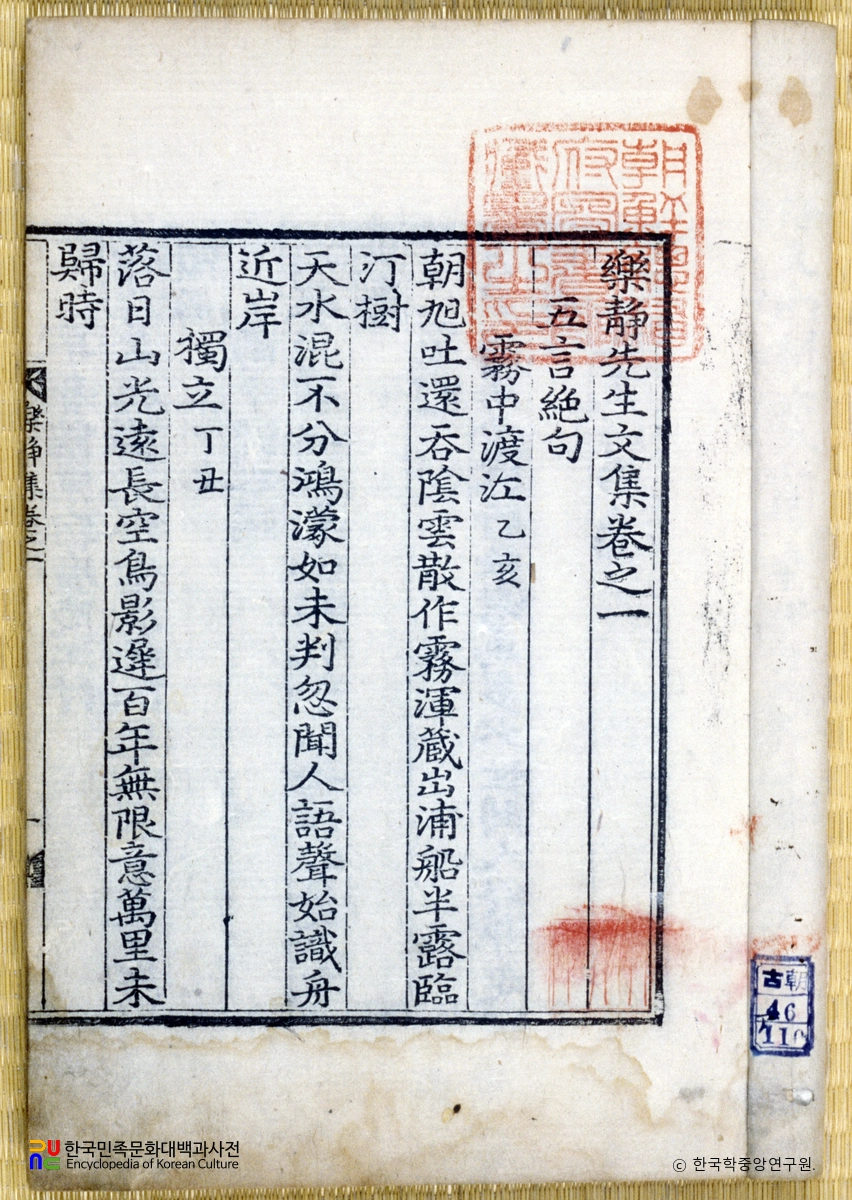 朝鮮總督
府圖書館
藏書之印
樂靜先生文集卷之一
五言絕句
霧中渡江 乙亥
朝旭吐還吞陰雲散作霧渾藏出浦船半露臨
汀樹
天水混不分鴻濛如未判忽聞人語聲始識舟
近岸
獨立 丁丑
落日山光遠長空鳥影遲百年無限意萬里未
歸時
樂靜集卷之一
一
古朝
46
한국민족문화대백과사전
Encyclopedia of Korean Culture
© 한국학중앙연구원.